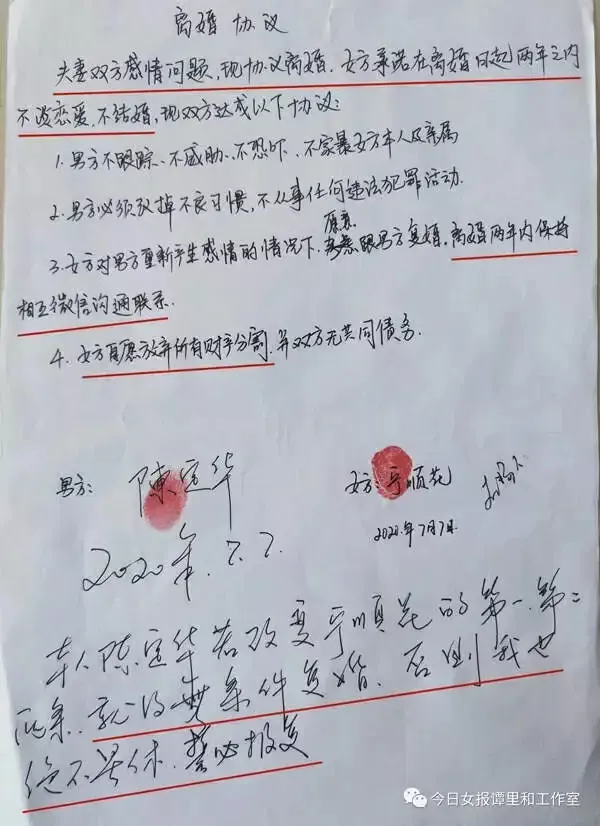 离婚协议
夫妻双方感情问题,现协议离婚.女方承诺在离婚日起两年之内
不谈恋爱.不结婚.现双方达成以下协议:
1.男方不跟踪、不威胁、不恐吓、不家暴女方本人及亲属
2.男方必须改掉不良习惯,不从事任何违法犯罪活动.
愿意
3.女方对男方重新产生感情的情况下,跟男方复婚,离婚两年内保持
相互微信沟通联系.
4.女方自愿放弃所有财产分割.并双方无共同债务.
男方:陳定华
女方:宁顺花
2020年7月7日
2020年.7.7.
本人陈定华若改变宁順花的第一.第二
条.就得無条件复婚、否则我也
绝不罢休.誓必报复
今日女报谭里和工作室